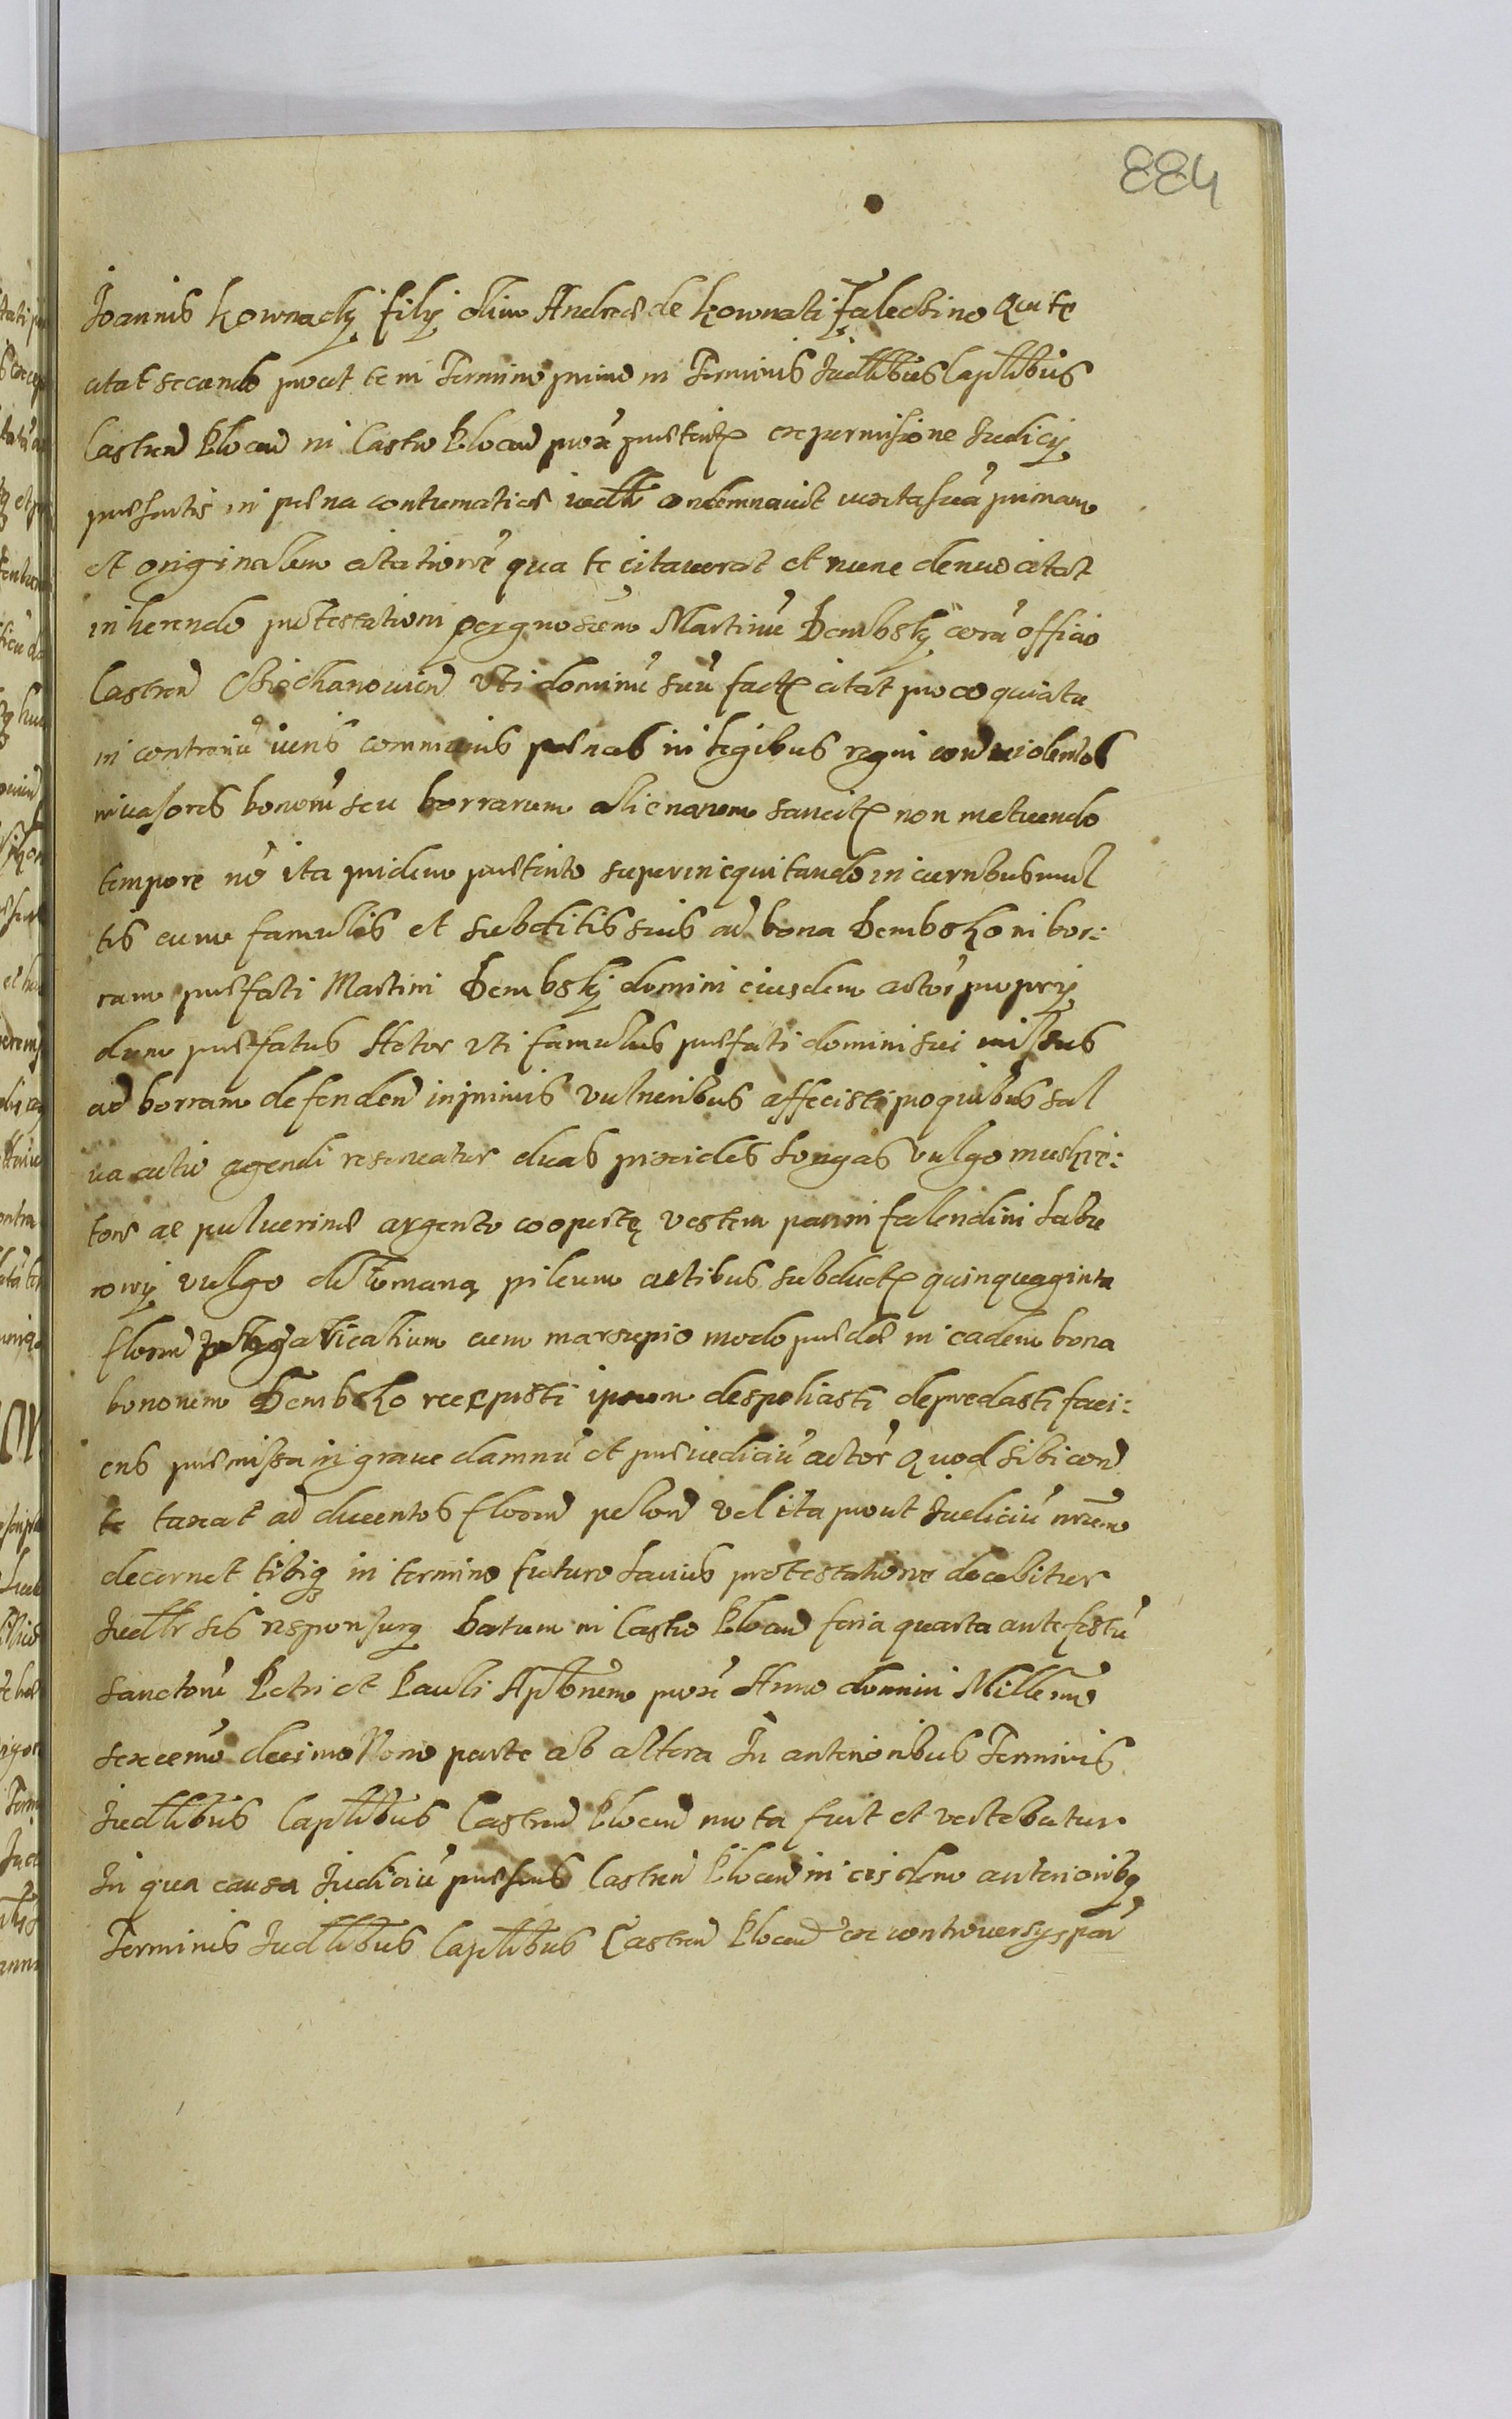 884
Joannis Kownacky filÿ olim Andreae de Kownati Falechino Qui te
citat secundo prout te in Termino primo in Terminis Judlibus Caplibus
Castren Plocen in Castro Plocen prox praeterit ex permissione Judicÿ
praesentis in paena contumatiae iudlr condemnavit iuxta suã primam
et originalem citationẽ qua te citaverat et nunc denuo citat
inherendo protestationi per gnosum Martinũ Dembsky corã officio
Castren Ciechanowien uti dominũ suũ fact citat pro eo quia tu
in contrariũ iuris communis paenas in legibus regni con violentos
invasores bonorũ seu borrarum alienarum sancit non metuendo
tempore nõ ita pridem praeterito superinequitando in curribus mul
tis cum famulis et subditis suis ad bona Dembsko ni bor:
ram praefati Martini Dembskÿ domini eiusdem actor proprÿ
dum praefatus Actor uti famulus praefati domini sui missus
ad borram defenden inprimis vulneribus affecisti pro quibus sal
va actio agendi reservatur duas pixides longas vulgo muskie:
ton ac pulverine argento coopert vestem panni falendini
vulgo pileum subduct quinquaginta
floren cum marsupio modo praede in eadem bona
bonorum Dembsko recepisti ipsum despoliasti depredasti faci:
ens praemissa in grave damnũ et praeiudiciũ actor Quod sibi con
te taxat ad ducentos floren polon vel ita prout Judiciũ nrum
decernet tibiq in termino futuro latius protestatione docebitur
Judlr sis responsurq Datum in Castro Plocen feria quarta ante festũ
sanctorũ Petri et Pauli Aplorum prox Anno domini Millemo
sexcemo decimo Nono parte ab altera In anterioribus Terminis
Judlibus Caplibus Castren Plocen mota fuit et vertebatur
In qua causa Judiciũ praesens Castren Plocen in eisdem anterioribq
Terminis Judlibus Caplibus Castren Plocen ex controversÿs par